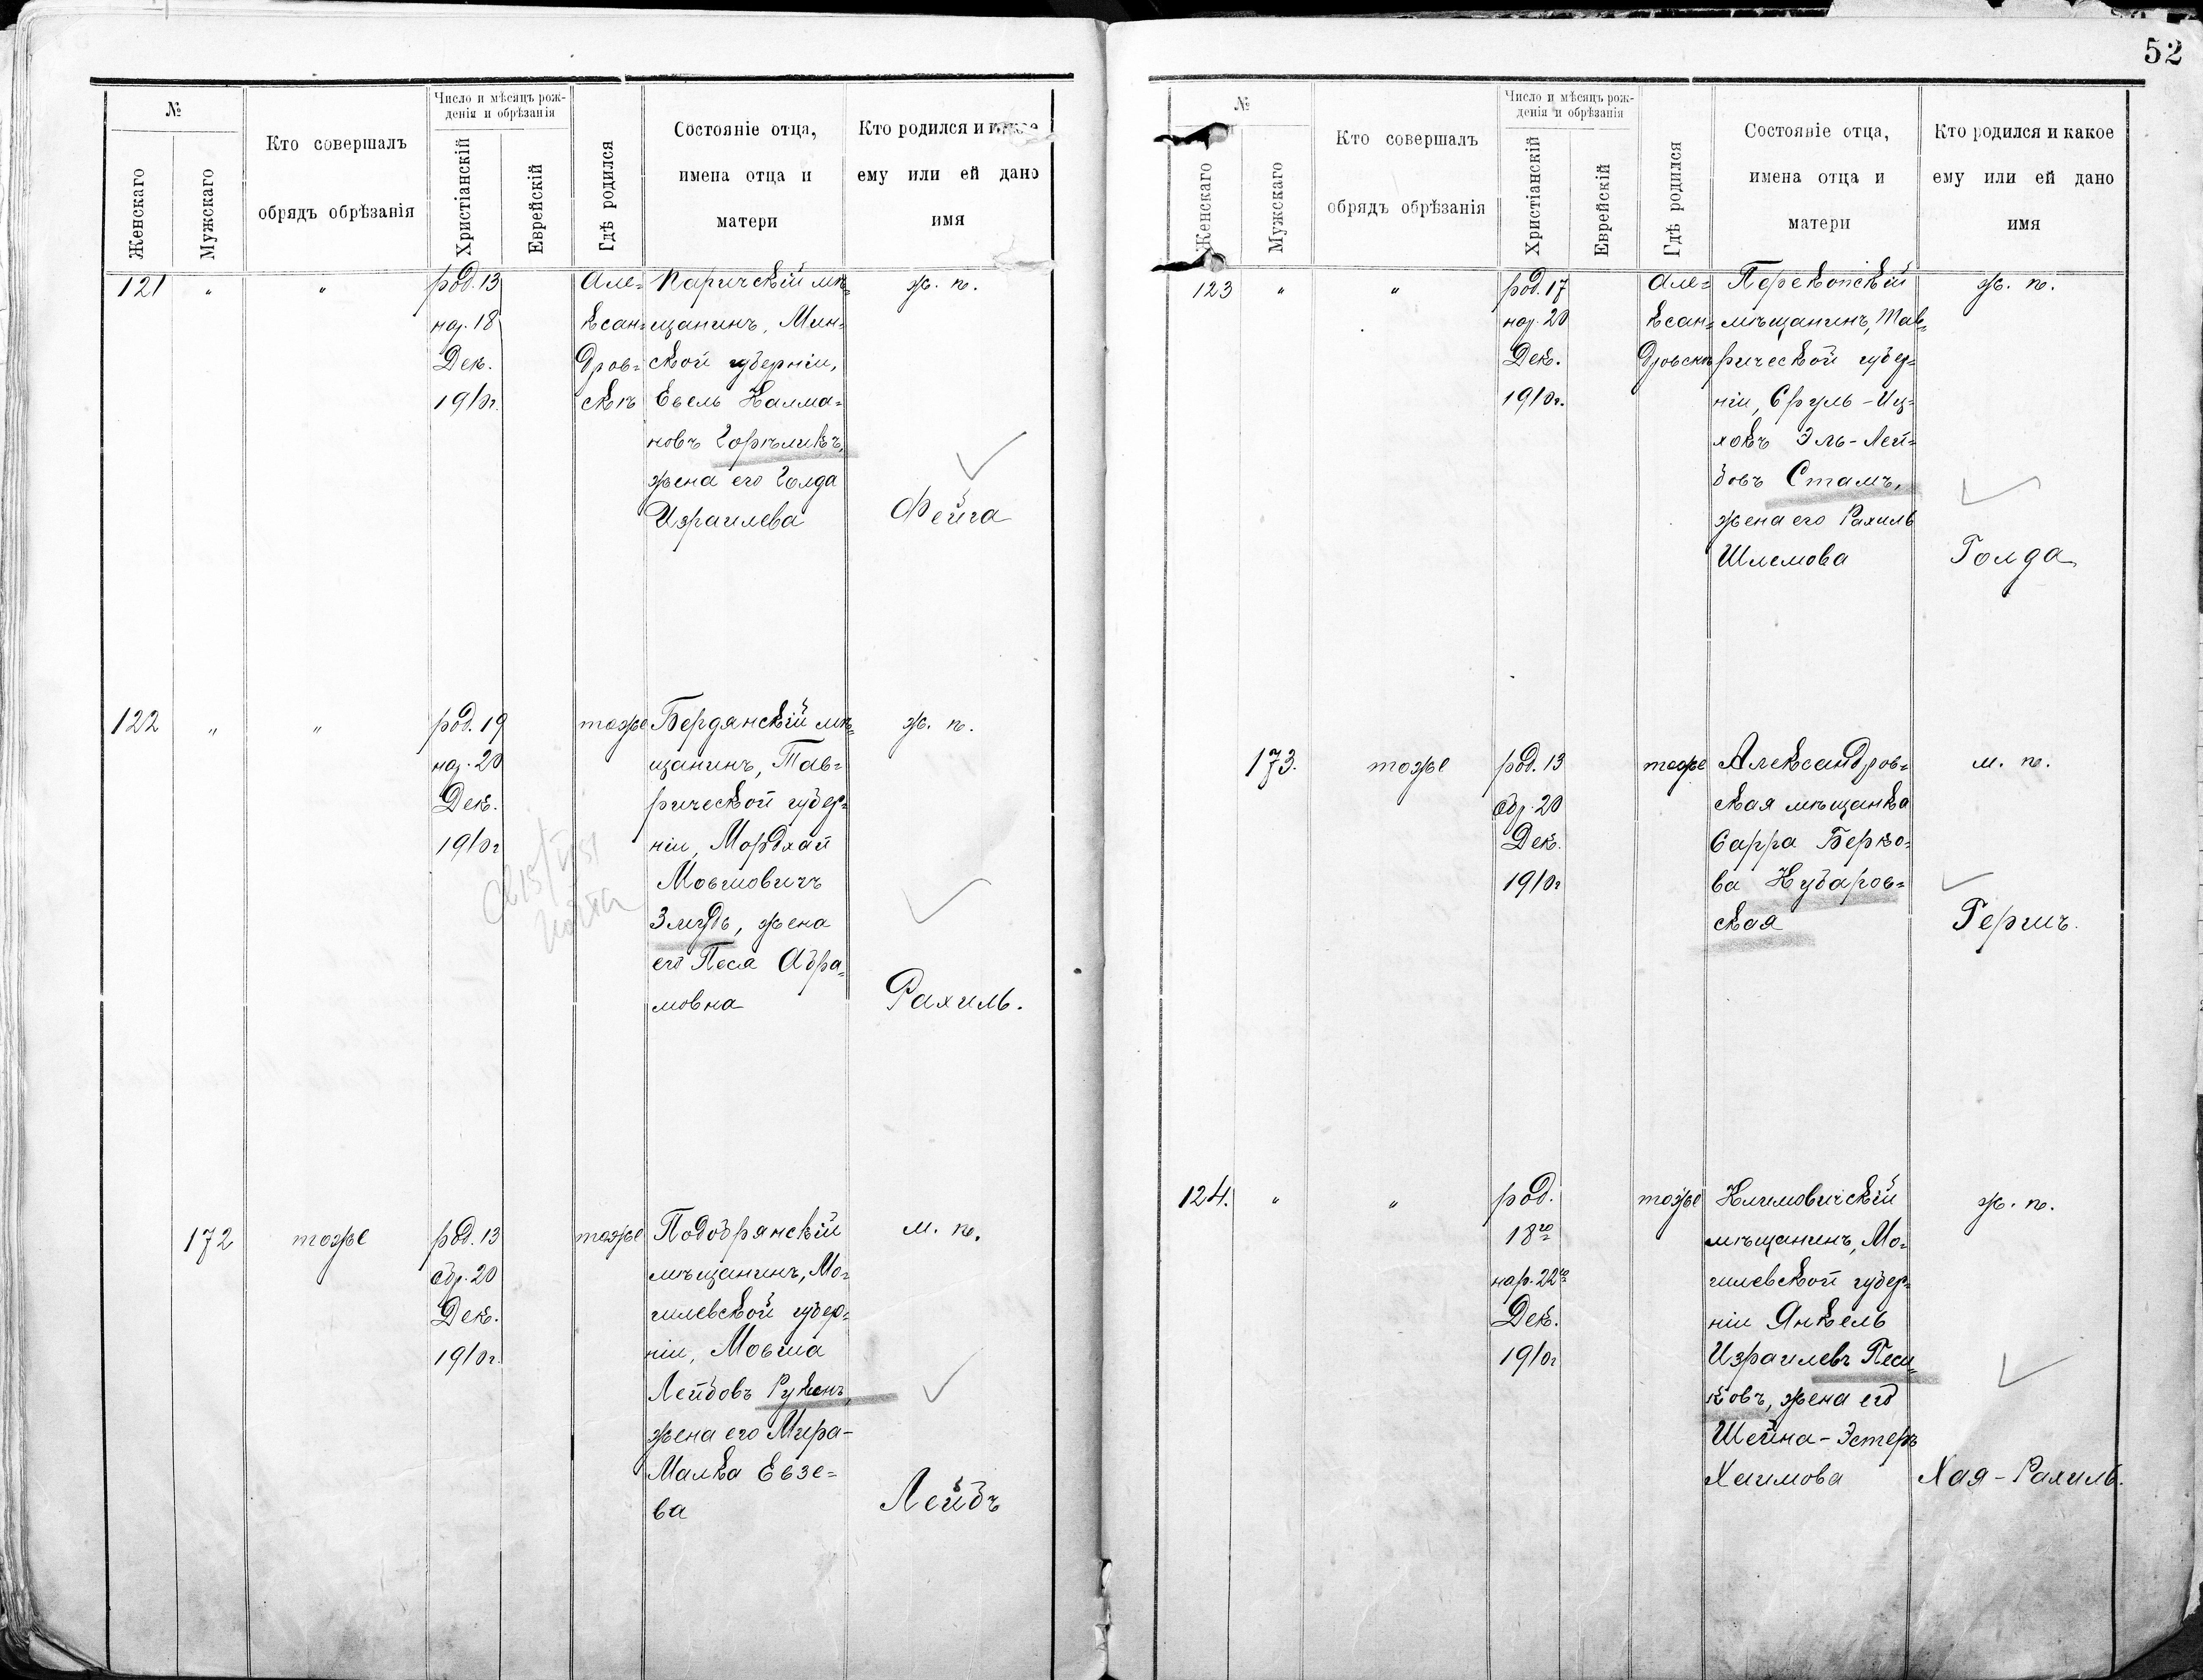 52
№
Женскаго
Мужскаго
Кто совершалъ
обрядъ обрѣзанія
Число и мѣсяцъ рож-
денія и обрѣзанія
Христіанскій
Еврейскій
Гдѣ родился
Состояніе отца,
имена отца и
матери
Кто родился и
ему или ей дано
имя
121 " "
род. 13
нар. 18
Дек.
1910г.
Але=
ксан=
дров=
скѣ
Паричскій мѣ=
щанинъ, Мин=
ской губерніи,
Евель Калма=
новъ Горѣликъ,
жена его Голда
Израилева
ж. п.
Фейга
122 " "
род. 19
нар. 20
Дек.
1910г
тоже
Бердянскій мѣ=
щанинъ, Тав=
рической губер=
ніи, Мордхай
Мовшовичъ
Змудь, жена
его Песя Абра=
мовна
ж. п.
Рахиль.
172
тоже
род. 13
обр. 20
Дек.
1910г.
тоже
Пододрянскій
мѣщанинъ, Мо=
гилевской губер=
ніи, Мовша
Лейбовъ Рукенъ,
жена его Мира-
Малка Евзе=
ва
м. п.
Лейбъ
№
Женскаго
Мужскаго
Кто совершалъ
обрядъ обрѣзанія
Число и мѣсяцъ рож-
денія и обрѣзанія
Христіанскій
Еврейскій
Гдѣ родился
Состояніе отца,
имена отца и
матери
Кто родился и какое
ему или ей дано
имя
123 " "
род. 17
нар. 20
Дек.
1910г.
Але=
ксан=
дровскѣ
Перекопскій
мѣщанинъ, Тав=
рической губер=
ніи, Сруль-Иц=
хокъ Эль-Лей=
бовъ Стамъ,
жена его Рахиль
Шлемова
ж. п.
Голда
173.
тоже
род. 13
обр. 20
Дек.
1910г
тоже
Александров=
ская мѣщанка
Сарра Берко=
ва Кубаров=
ская
м. п.
Гершъ.
124. " "
род.
18го
нар. 22го
Дек.
1910г
тоже
Климовичскій
мѣщанинъ, Мо=
гилевской губер=
ніи Янкель
Израилевъ Песи=
ковъ, жена его
Шейна-Эстеръ
Хаимова
ж. п.
Хая-Рахиль.